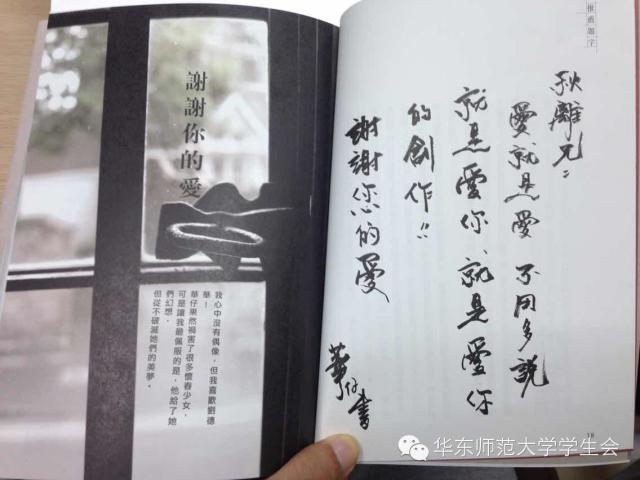 秋離兄：
愛就是愛 不用多說
就是愛你、就是愛你
的創作!!
謝謝您的愛
華仔書
謝謝你的愛
我心中沒有偶像，但我喜歡劉德
華！
華仔果然禍害了很多懷春少女，
可是讓我最佩服的是，他給了她
們幻想，
但從不破滅她們的美夢。
华东师范大学学生会